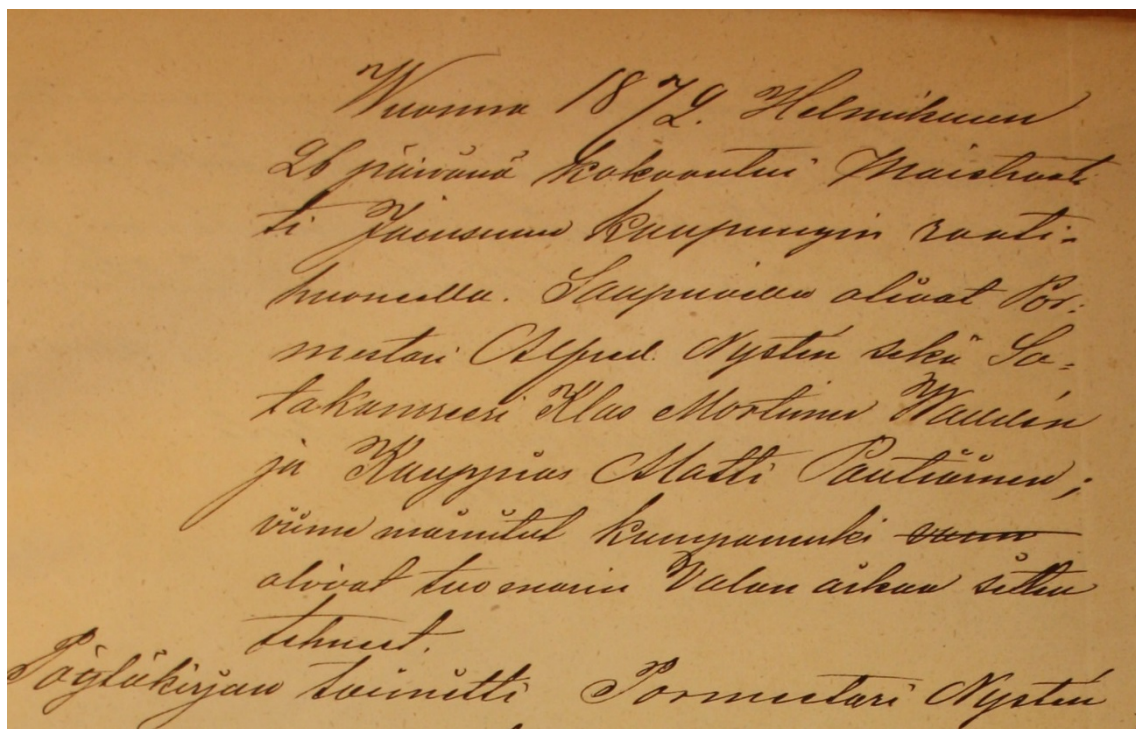 Wuonna 1872. Helmikuun
26 päivänä kokoontui Maistraat-
ti Joensuun kaupungin raati-
huoneella. Saapuvilla olivat Por-
mestari Alfred Nystén sekä So-
takamreeri Klas Mortimer
ja Kauppias Matti Parviainen;
viime mainitut kumpanenki
olivat tuomarin Valan aikaa sitte
tehneet.
Pöytäkirjan toimitti Pormestari Nystén